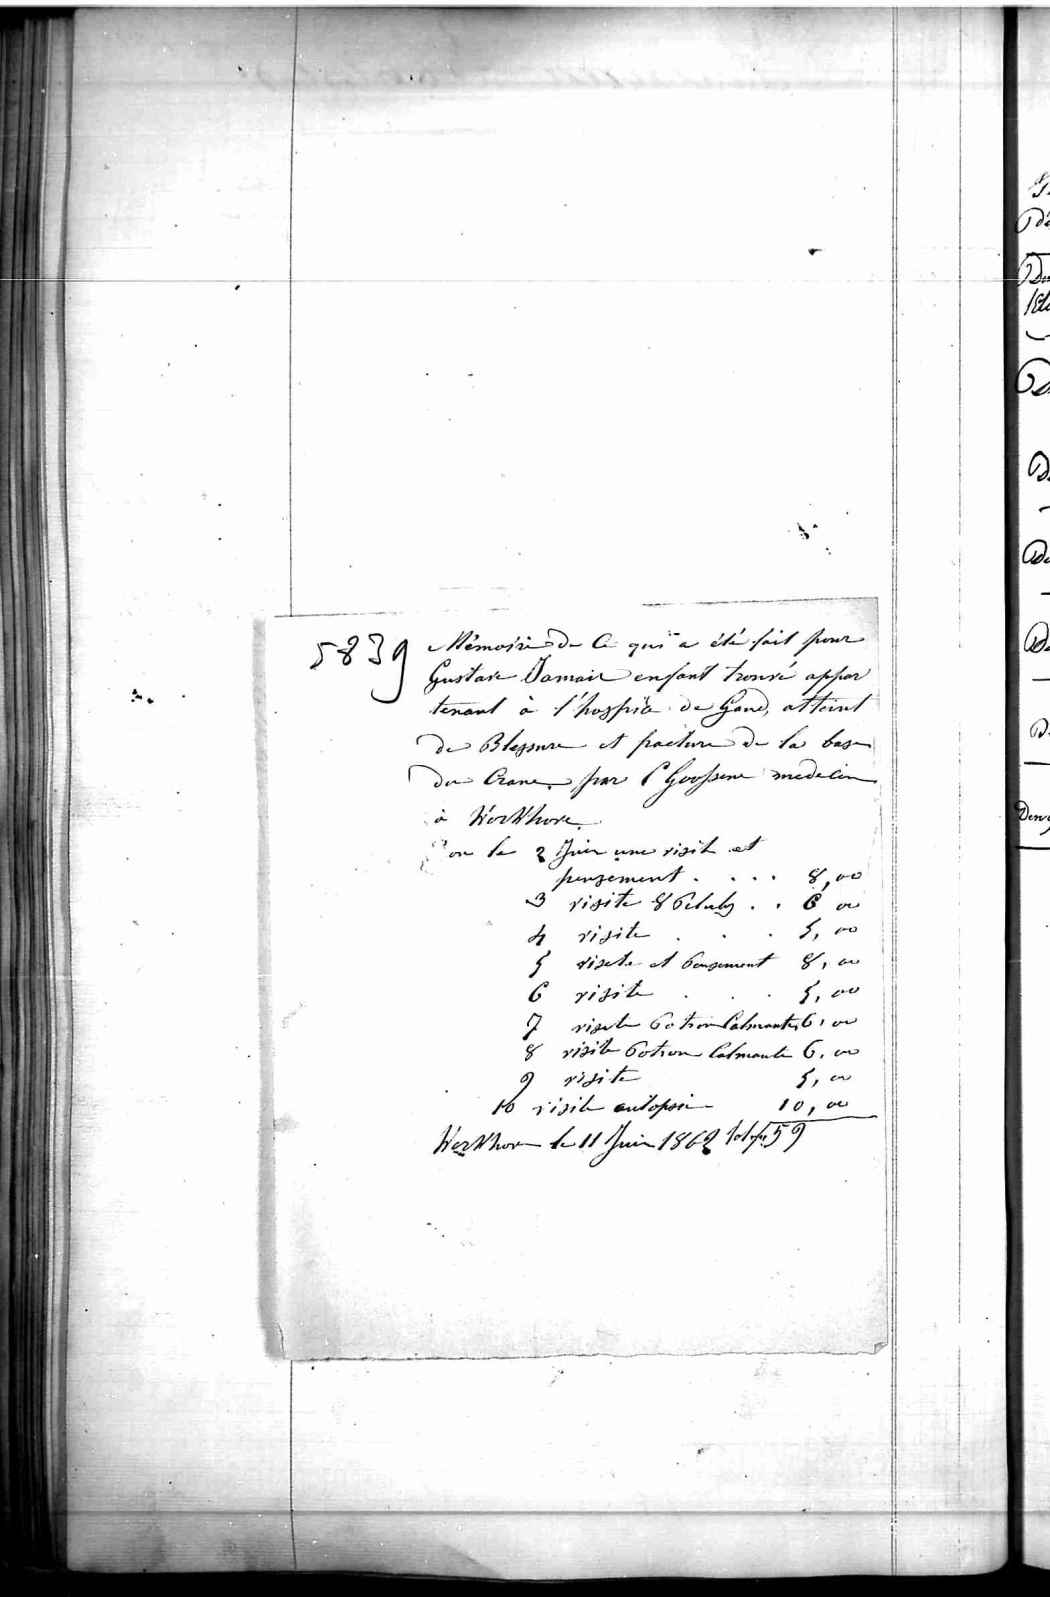 5839
Mémoire de Ce qui a été fait pour
Gustave Jamair enfant trouvé appar
tenant à l'hospice de Gand, atteint
de Blessure et fracture de la base
du Crane, par C Goossens medecin
à Workhove.
le 2 Juin une visite et
pensement . . . . 8,00
3 visite 8 . . 6 00
4 visite . . . 5,00
5 visete et Pensement 8,00
6 visite . . . 5,00
7 visite Potion Calmante 6,00
8 visite Potion Calmante 6,00
9 visite 5,00
10 visite autopsie 10,00
Workhove le 11 Juin 1862 total fr 59